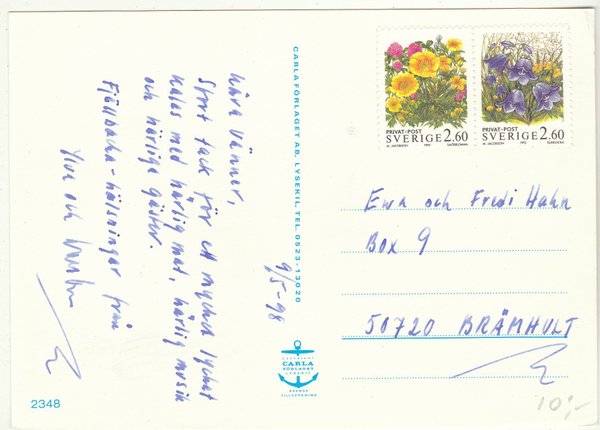 9/5-98
Kära vänner,
Stort tack för ett mycket lyckat
kalas med härlig mat, härlig musik
och härliga gäster.
Fjällbacka-hälsningar från
Ylva och
CARLAFÖRLAGET AB, LYSEKIL, TEL. 0523-13020
PRIVAT-POST
SVERIGE 2.60
M. JACOBSON 1993
PRIVAT-POST
SVERIGE 2.60
M. JACOBSON 1993
Ewa och Fredi Hahn
Box 9
50720 BRÄMHULT
COPYRIGHT
CARLA
FÖRLAGET
LYSEKIL
SVENSK
TILLVERKNING
2348
10:-